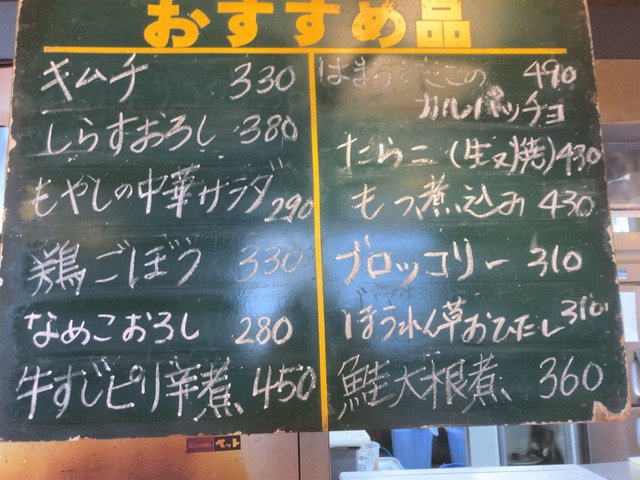 おすすめ品
キムチ 330
しらすおろし 380
もやしの中華サラダ 290
鶏ごぼう 330
なめこおろし 280
牛すじピリ辛煮 450
はまちとたこの 490
カルパッチョ
たらこ(生又焼)430
もつ煮込み 430
ブロッコリー 310
ほうれん草おひたし 310
鮭大根煮 360
ペット